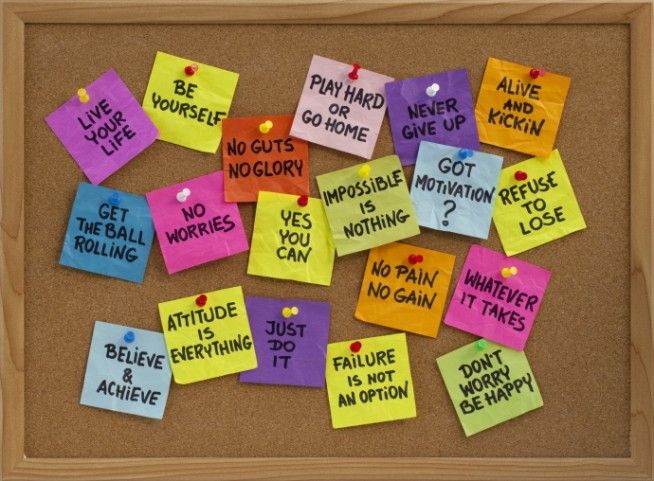 LIVE
YOUR
LiFE
BE
YOURSELF
NO GUTS
NO GLORY
PLAY HARD
OR
GO HOME
NEVER
GiVE UP
ALiVE
AND
KiCKiN
GET
THE BALL
ROLLiNG
NO
WORRiES
YES
YOU
CAN
iMPOSSiBLE
iS
NOTHiNG
GOT
MOTiVATiON
?
REFUSE
TO
LOSE
NO PAiN
NO GAiN
WHATEVER
iT TAKES
BELiEVE
&
ACHiEVE
ATTiTUDE
iS
EVERYTHiNG
JUST
DO
iT
FAiLURE
iS NOT
AN OPTiON
DON'T
WORRY
BE HAPPY